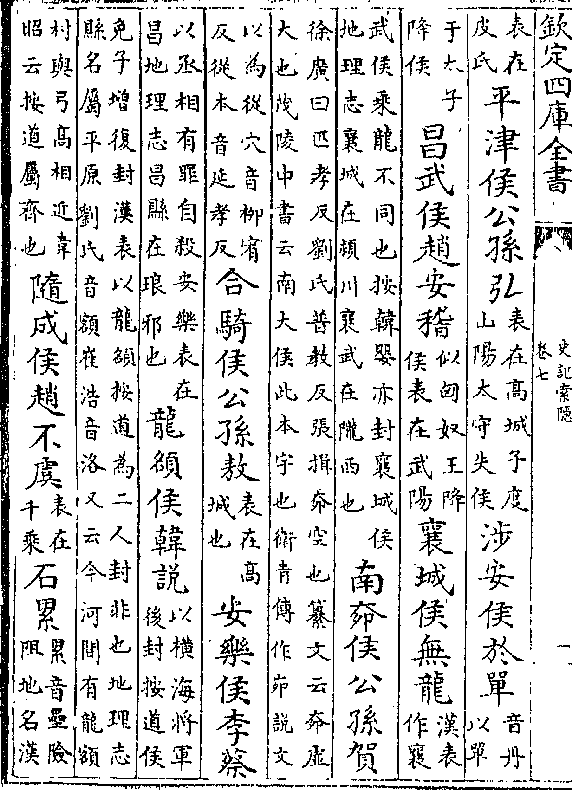 欽定四庫全書
史記索隱
卷七
表在皮氏平津侯公孫弘表在高城子度山陽太守失侯涉安侯於單音丹以單
于太子降侯昌武侯趙安稽似匈奴王降侯表在武陽襄城侯無龍漢表作襄
武侯乘龍不同也按韓嬰亦封襄城侯地理志襄城在潁川襄武在隴西也南奅侯公孫賀
徐廣曰匹孝反劉氏普教反張揖奅空也纂文云奅虛大也茂陵中書云南大侯此本字也衛青傳作說文
以為從穴音柳宥反從本音延孝反合騎侯公孫敖表在高城也安樂侯李蔡
以丞相有罪自殺安樂表在昌地理志昌縣在琅邪也龍頟侯韓說以橫海將軍後封按道侯
免子增復封漢表以龍頟按道為二人封非也地理志縣名屬平原劉氏音額崔浩音洛又云今河間有龍額
村與弓高相近韋昭云按道屬齊也隨成侯趙不虞表在千乘石累累音壘險阻地名漢